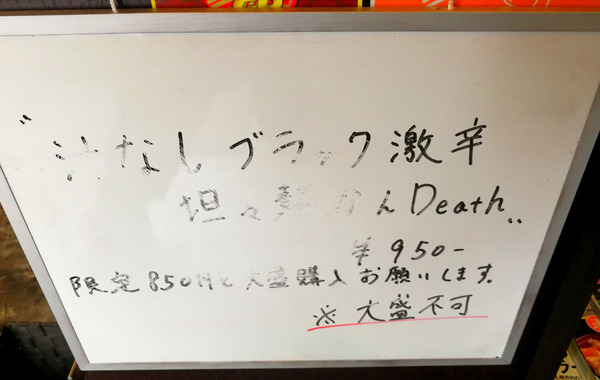 "汁なしブラック激辛
坦々麺かんDeath"
￥950-
限定850円と大盛購入お願いします。
※大盛不可